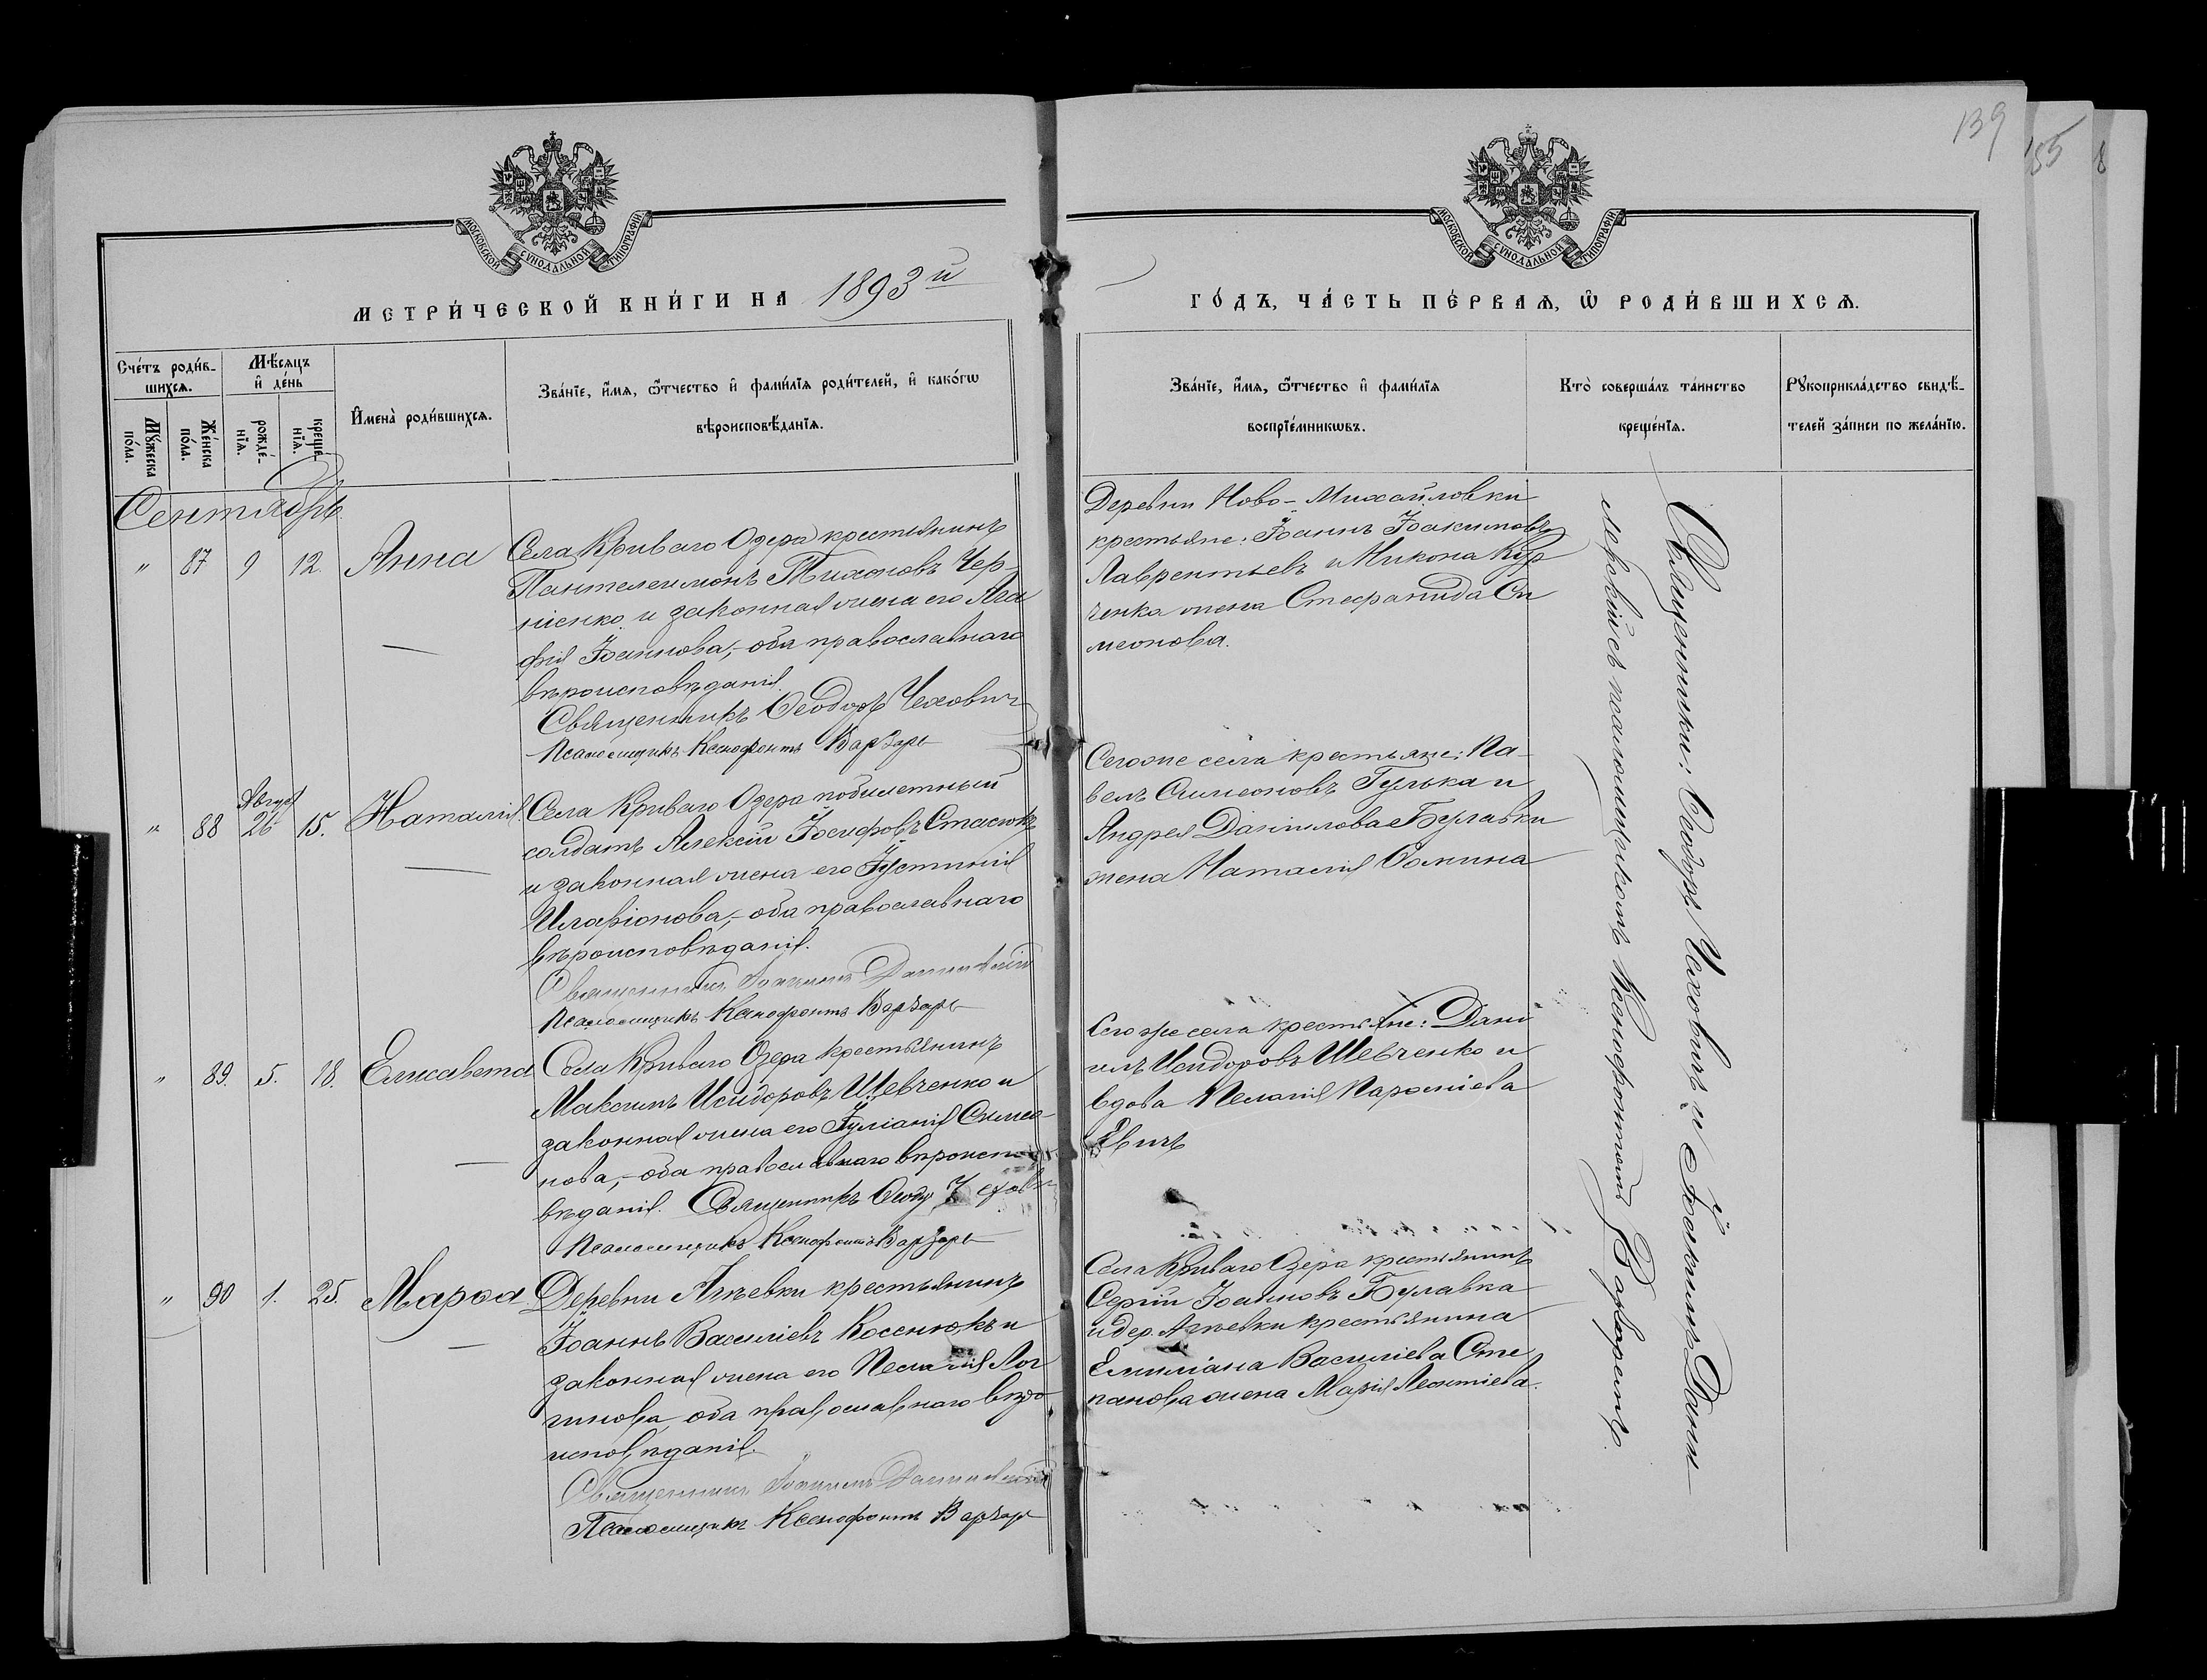 139
155
8
МОСКОВСКОЙ СѴНОДАЛЬНОЙ ТИПОГРАФІИ
МОСКОВСКОЙ СѴНОДАЛЬНОЙ ТИПОГРАФІИ
МЕТРИ́ЧЕСКОЙ КНИ́ГИ НА 1893й
ГО́ДЪ, ЧА́СТЬ ПЕ́РВАѦ, Ѡ РОДИ́ВШИХСѦ.
Сче́тъ роди́в-
шихсѧ.
Мꙋ́жеска
по́ла.
Же́нска
по́ла.
Мѣ́сѧцъ
и҆ де́нь
рожде́-
нїѧ.
креще́-
нїѧ.
И҆мена̀ роди́вшихсѧ.
Зва́нїе, и҆́мѧ, ѻ҆́тчество и҆ фами́лїѧ роди́телей, и҆ како́гѡ
вѣроисповѣ́данїѧ.
Зва́нїе, и҆́мѧ, ѻ҆́тчество и҆ фами́лїѧ
воспрїе́мникѡвъ.
Кто̀ соверша́лъ та́инство
креще́нїѧ.
Рꙋкоприкла́дство свидѣ́-
телей за́писи по жела́нїю.
Сентябрь
" 87 9 12. Анна
Села Криваго Озера крестьянинъ
Пантелеимонъ Тихоновъ Чер-
ніенко и законная жена его Ага
фія Іоаннова, - оба православнаго
вѣроисповѣданія.
Священникъ Ѳеодоръ Чехович
Псаломщикъ Ксенофонтъ Варзарь
Деревни Ново-Михайловки
крестьяне: Іоаннъ Іоакимовъ
Лаврентьевъ и Никона Кур
ченка жена Стефанида Си
меонова.
" 88 Август 26 15. Наталія.
Села Криваго Озера побилетный
солдатъ Алексій Іосифовъ Стасюкъ
и законная жена его Іустинія
Иларіонова, - оба православнаго
вѣроисповѣданія.
Священникъ Іоаннъ
Псаломщикъ Ксенофонтъ Варзарь
Сегоже села крестьяне: Па-
велъ Симеоновъ Гулька и
Андрея Даніилова Булавки
жена Наталія Ѳомина
" 89. 5. 18. Елисавета
Села Криваго Озера крестьянинъ
Максимъ Исидоровъ Шевченко и
законная жена его Іуліанія Симео-
нова, - оба православнаго вѣроиспо
вѣданія. Священникъ Ѳеодоръ Чехович
Псаломщикъ Ксенофонтъ Варзарь
Сегоже села крестьяне: Дані
илъ Исидоровъ Шевченко и
вдова Пелагія
" 90 1. 25. Марѳа
Деревни Ажевки крестьянинъ
Іоаннъ Василіевъ Косенюкъ и
законная жена его Пелагія Лог
гинова, оба православнаго вѣро
исповѣданія.
Священникъ Іоаннъ
Псаломщикъ Ксенофонтъ Варзарь
Села Криваго Озера крестьянинъ
Сергій Іоанновъ Булавка
и дер. Ажевки крестьянина
Емиліана Василіева Сте
панова жена Марія Леонтіева.
Священники: Ѳеодоръ Чеховичъ и Іоаннъ
съ псаломщикомъ Ксенофонтомъ Варзаремъ.